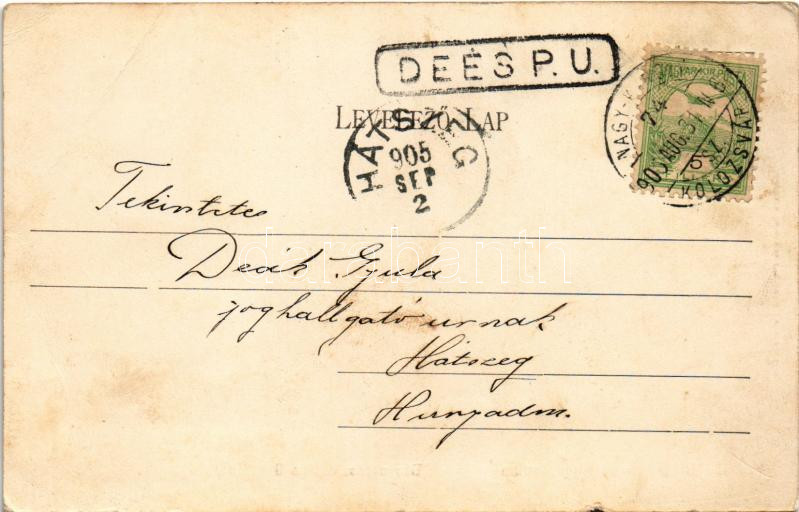 DEÉS P. U.
LEVELEZŐ LAP
MAGYAR KIR. POSTA
NAGY-K
KOLOZSVÁR
24
905 AUG. 31
5 SZ
HÁTSZEG
905
SEP
2
Tekintetes
Deák Gyula
joghallgató urnak
Hátszeg
Hunyadm.
darabanth